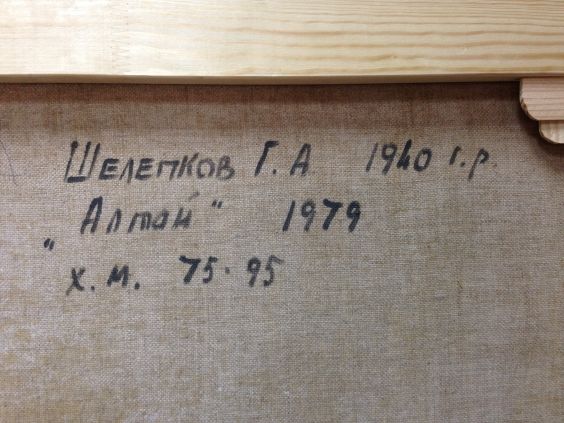 Шелепков Г. А 1940 г.р.
"Алтай" 1979
х.м. 75·95